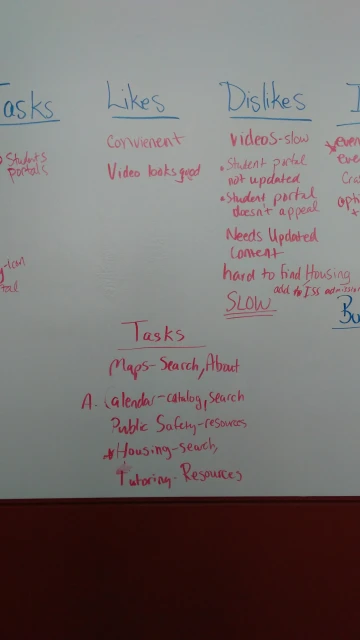 Tasks
Students
portals
Likes
Convienent
Video looks good
Dislikes
videos-slow
• Student portal
not updated
• Student portal
doesn't appeal
Needs Updated
Content
hard to find Housing
add to ISS admission
SLOW
Tasks
Maps-Search, About
A. Calendar-catalog, search
Public Safety-resources
*Housing-search,
Tutoring-Resources